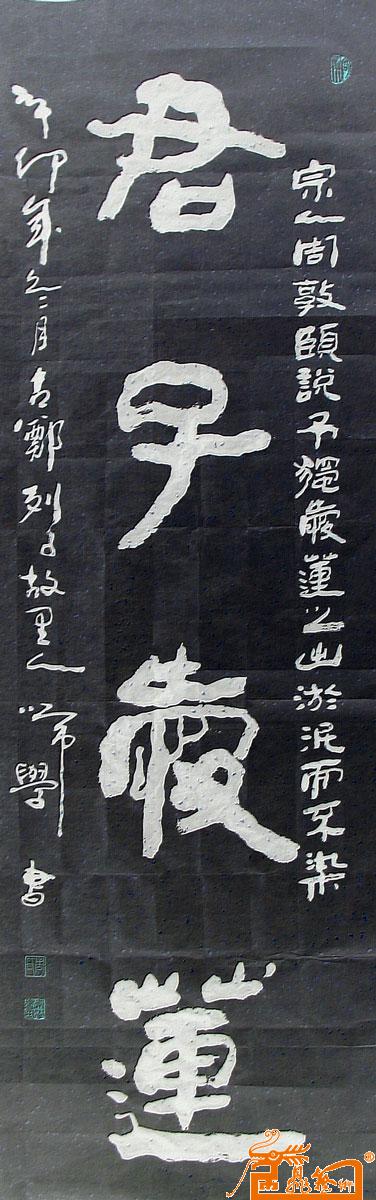 宗人周敦頤說予獨愛蓮之出淤泥而不染
君子愛蓮
辛卯年二月古鄭列子故里人學書